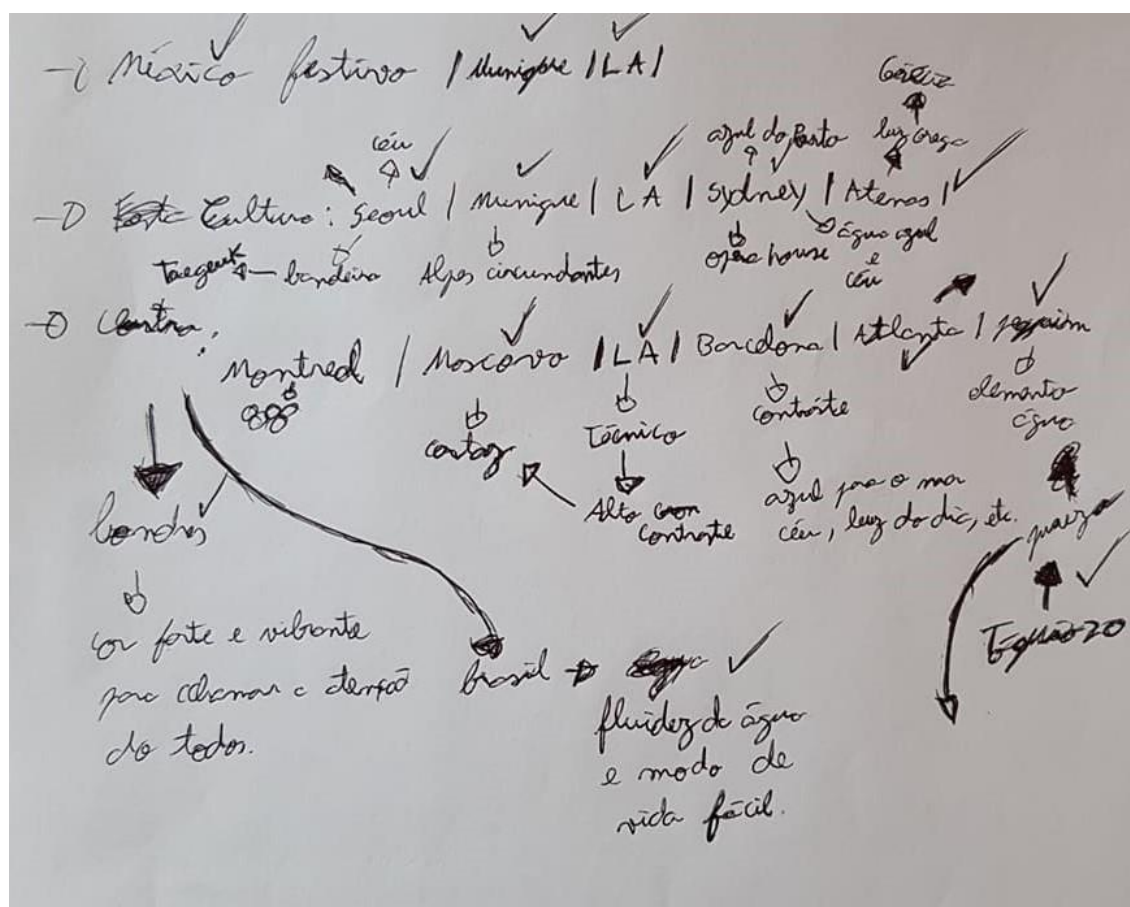 México festivo | Munique | LA |
Galáxia
céu
azul do Porto
luz grega
Cultura: Seoul | Munique | LA | Sydney | Atenas |
Taeguk
bandeira
Alpes circundantes
Opera house
água azul
e
céu
Montreal | Moscovo | LA | Barcelona | Atlanta |
cartaz
Técnico
contraste
elemento
água
Alto
contraste
azul para o mar
céu, luz do dia, etc.
Londres
cor forte e vibrante
para chamar a atenção
do todos.
brasil
fluidez da água
e modo de
vida fácil.